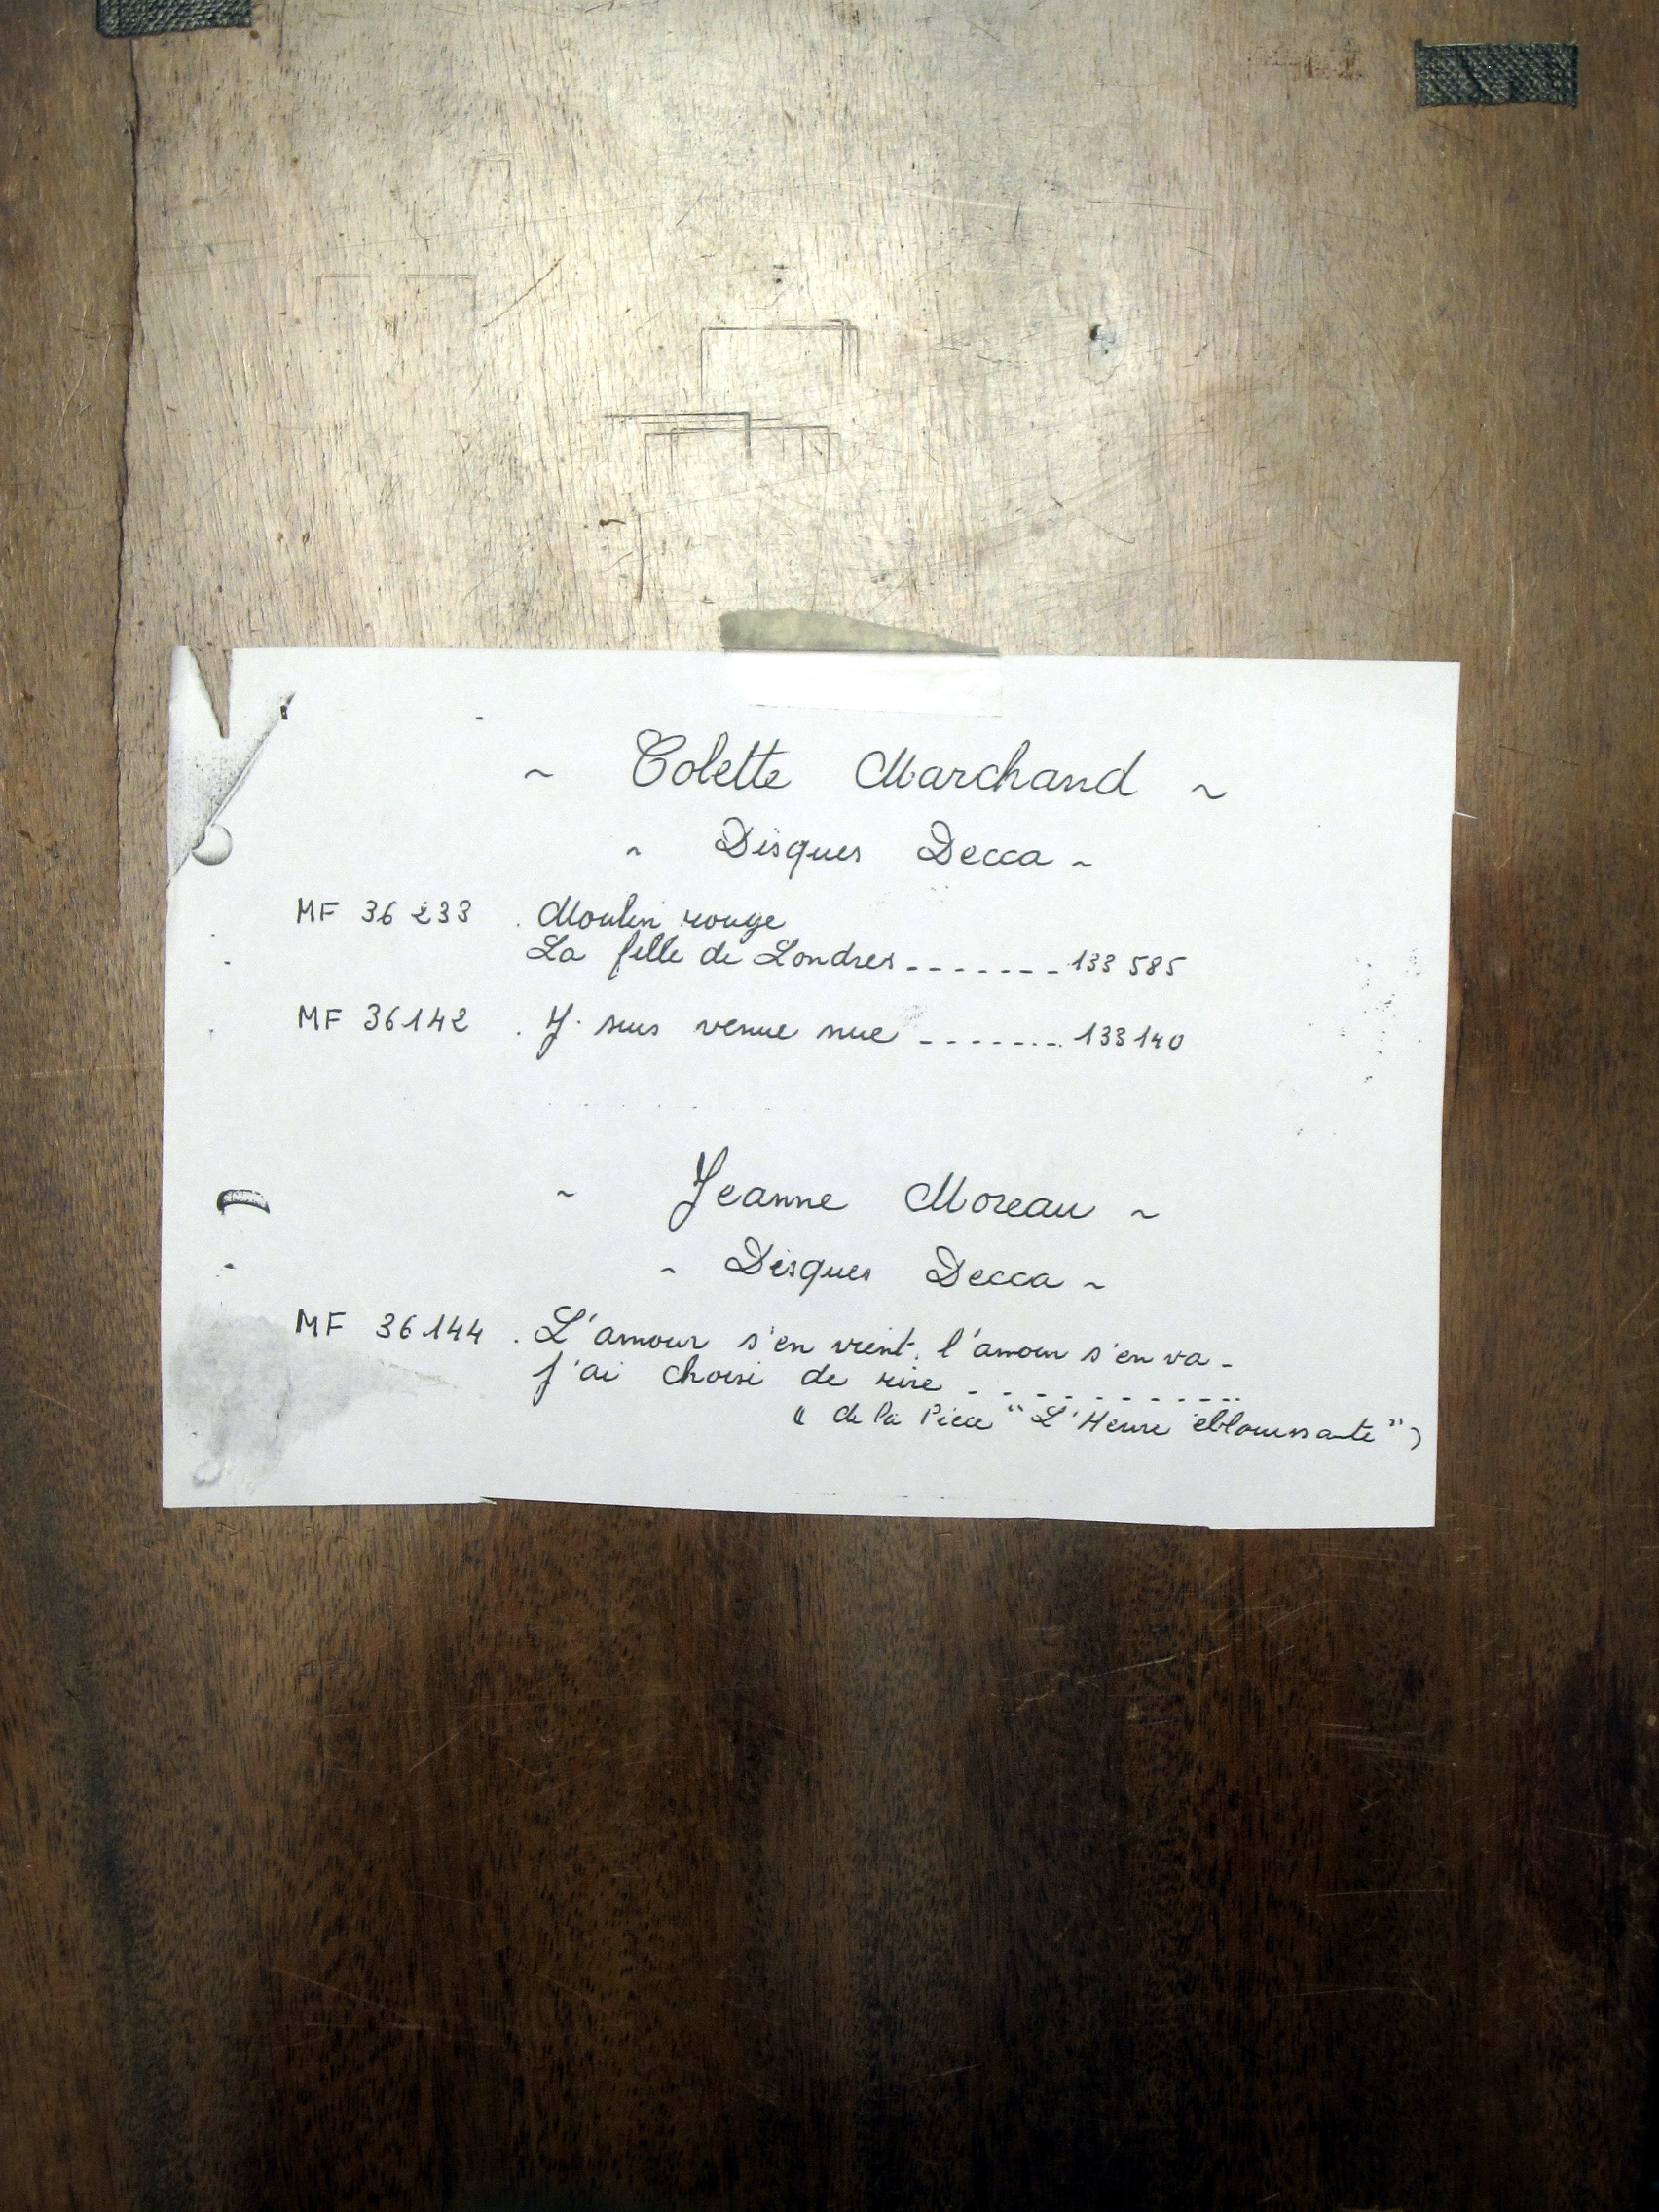 ~ Colette Marchand ~
~ Disques Decca ~
MF 36 233 . Moulin rouge
La fille de Londres - - - - - - - 133 585
MF 36142 . J. suis venue nue - - - - - - - 133140
~ Jeanne Moreau ~
~ Disques Decca ~
MF 36144 . L'amour s'en vient, l'amour s'en va -
J'ai choisi de rire - - - - - - - - - - - -
( de la Pièce "L'Heure éblouissante")